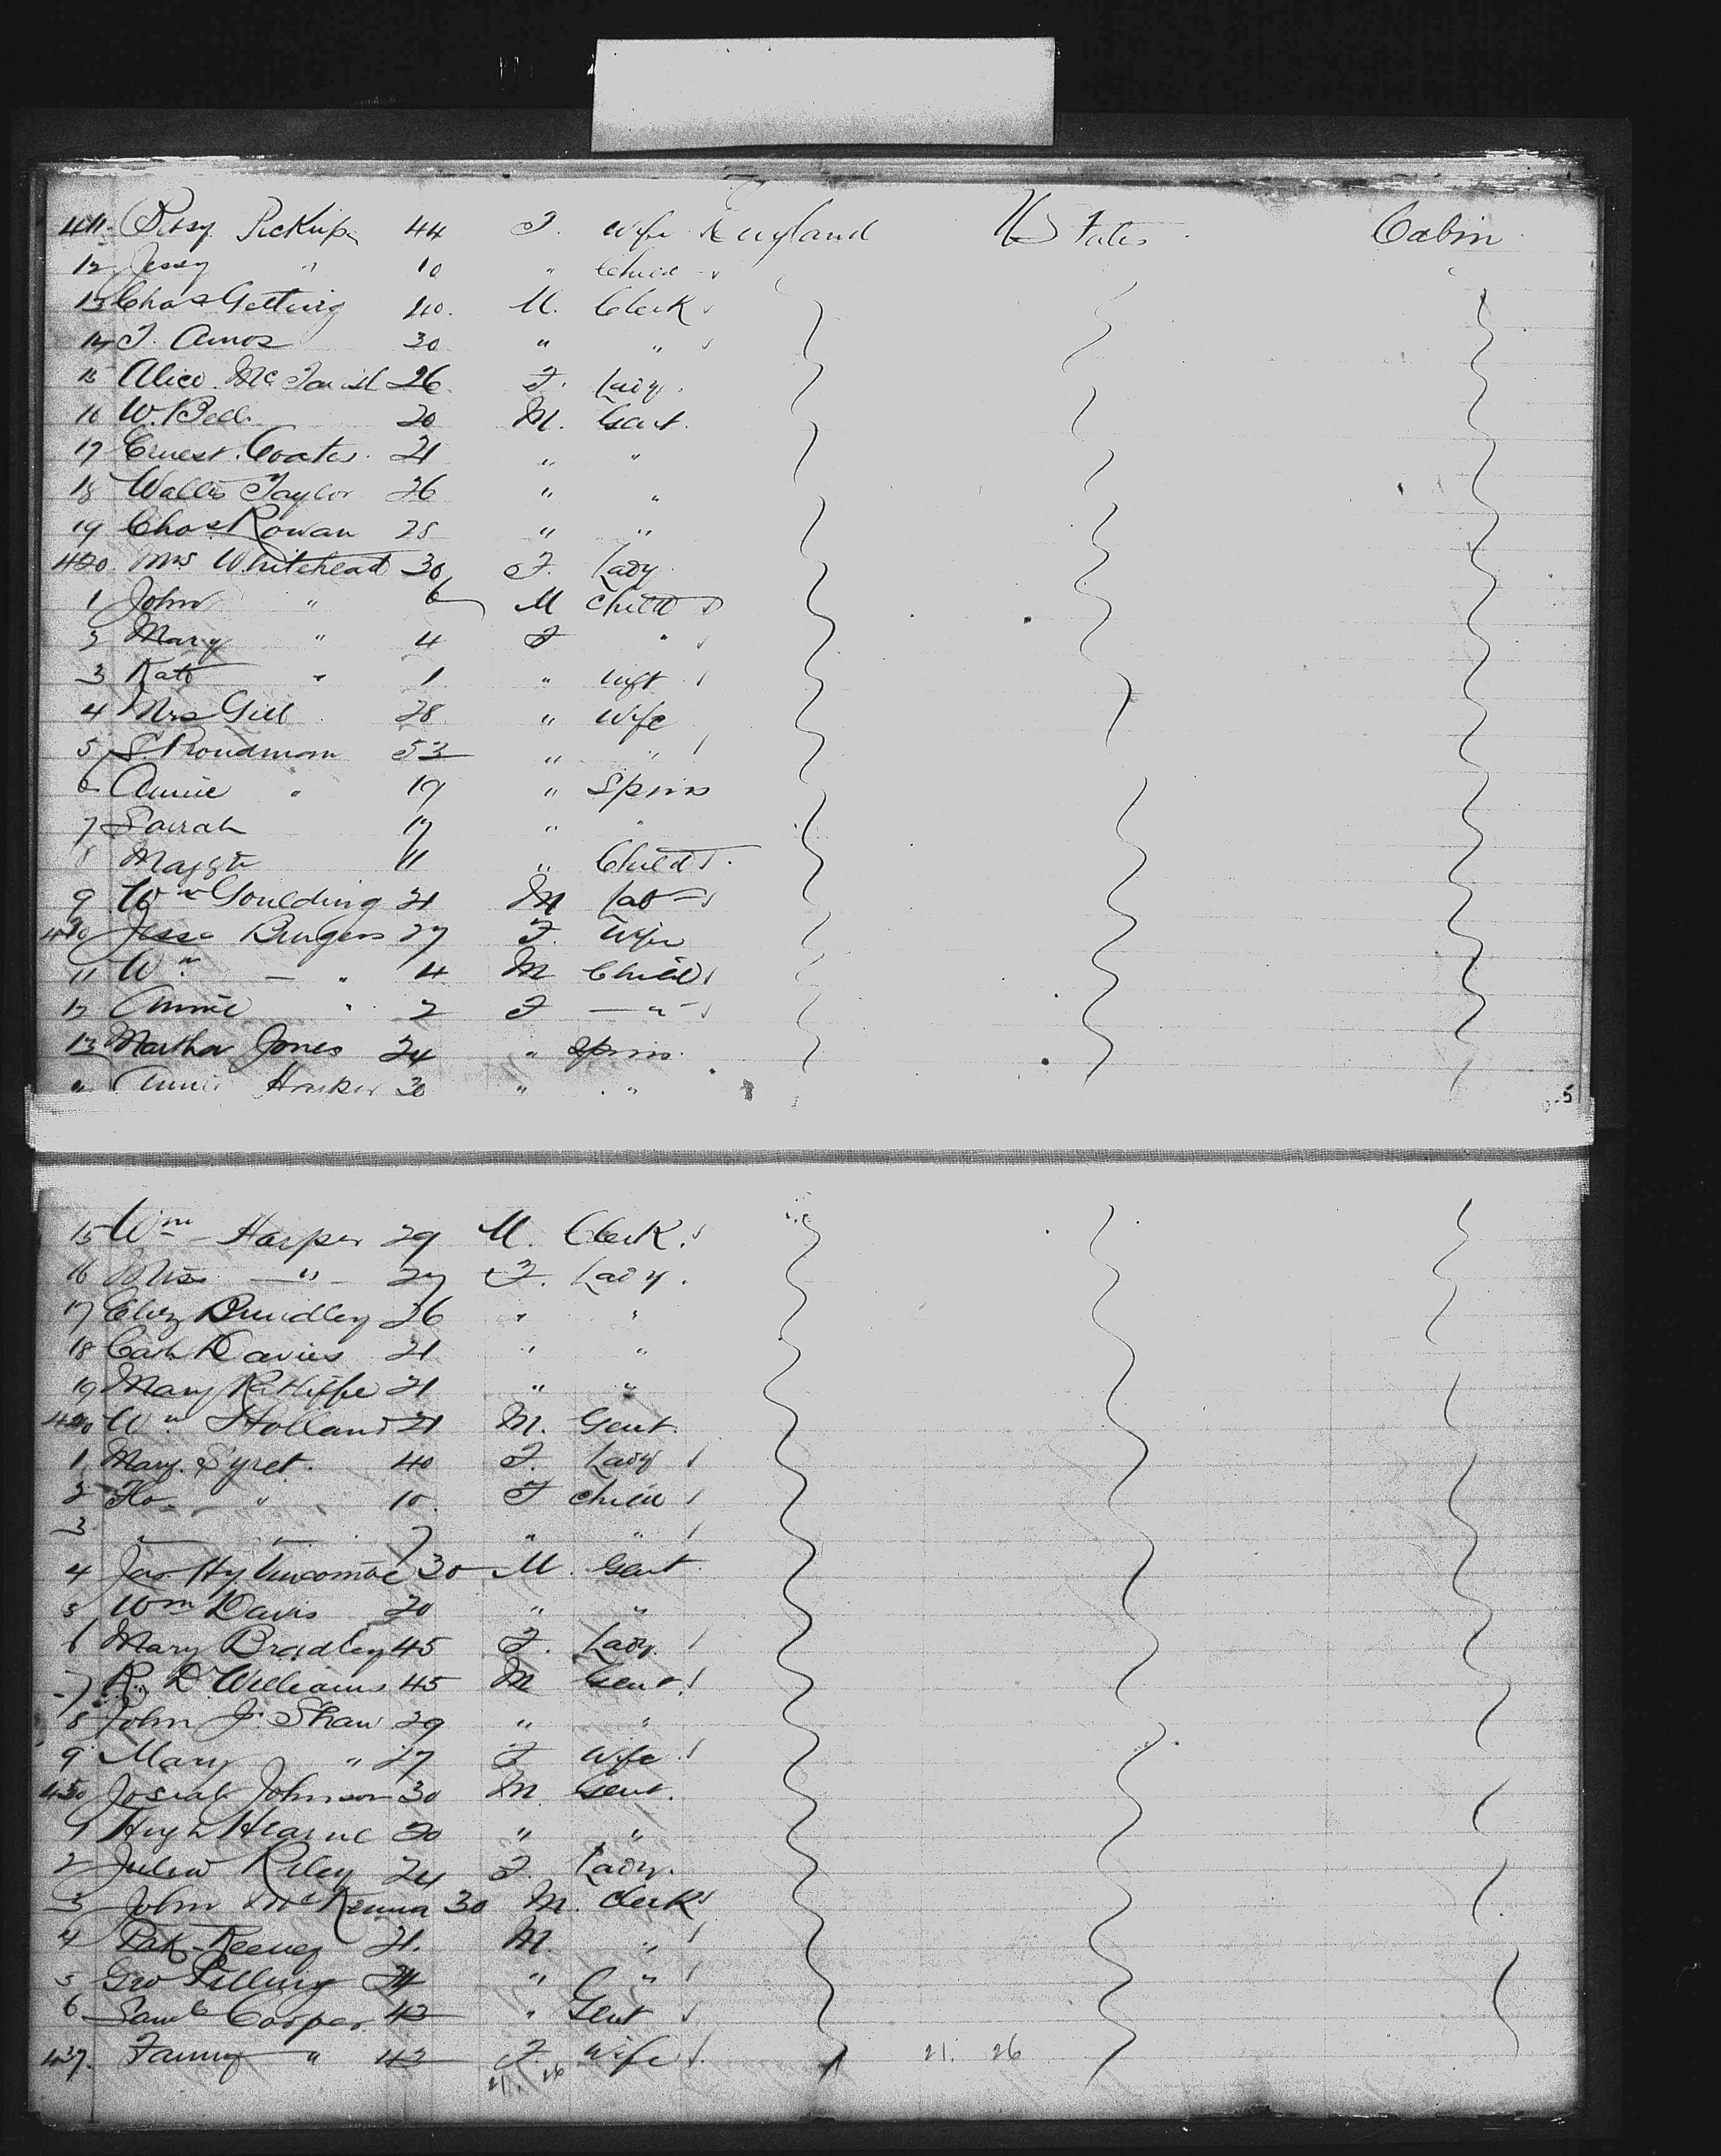 411. Pickup 44 F. Wife England U States Cabin
12 Jessy " 10 " Child
13 Chas Getting 40. M. Clerk
14 J. Amos 30 " "
15 Alice Mc 26 F. Lady.
16 W. Bell 20 M. Gent.
17 Ernest Coates. 21 " "
18 Walter Taylor 26 " "
19 Chas Rowan 28 " "
420 Mrs Whitehead 30 F. Lady
1 John " 6 M Child
2 Mary " 4 F "
3 Kate " 1 " inft
4 Mrs Gill 28 " Wife
5 S. Proudmom 53 " "
6 Annie " 19 " Spins
7 Sarah 17 " "
8 Maggie 11 " Child
9 Wm Goulding 21 M Lab
Jesse Burgess 27 F. Wife
11 Wm — " 4 M Child
12 Annie " 2 F — " —
13 Martha Jones 24 " Spins.
" Annie 30 " "
0-5
15 Wm Harper 29 M. Clerk.
16 Miss — " — 27 F. Lady.
17 Eliz Brindley 26 " "
18 Cath Davies 21 " "
19 Mary Ratliffe 21 " "
Wm Holland 21 M. Gent.
1 Mary Syret. 40 F. Lady
2 Flo " 10. F Child
3 " " 7 " "
4 Jas Hy 30 M. Gent.
5 Wm Davis 20 " "
6 Mary Bradley 45 F. Lady.
7 R. D. Williams 45 M Gent.
8 John J. Shaw 29 " "
9 Mary " 27 F Wife
430 Josiah Johnson 30 M Gent.
1 Hugh Hearne 20 " "
2 Julia Riley 24 F. Lady.
3 John McKenna 30 M. Clerk
4 Pat Keeney 21. M. "
5 Geo Pilling 24 " "
6 Saml Cooper 42 " Gent
437. Fanny " 42 F. Wife 21. 26
21. 26